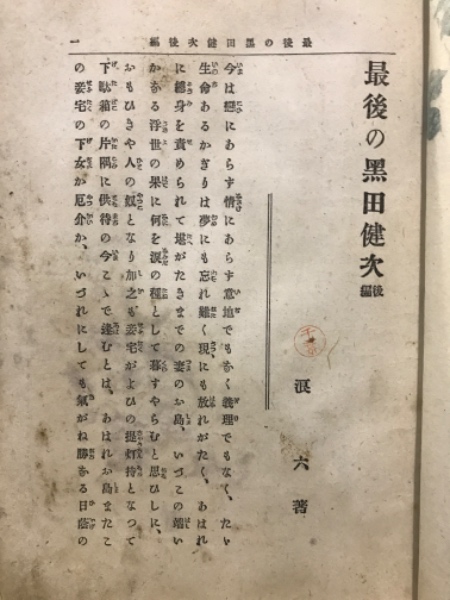 最後の黑田健次後編
一
最後の黑田健次
後編
涙六著
今は戀にあらず情にあらず意地でもなく義理でもなく、たゞ
生命あるかぎりは夢にも忘れ難く現にも放れがたく、あはれ
に總身を責められて堪がたきまでの妾のお島、いづこの端い
かなる浮世の果に何を涙の種として暮すやらむと思ひしに、
おもひきや人の奴となり加之も妾宅がよひの提灯持となつて
下駄箱の片隅に供待の今こゝで逢むとは、あはれお島またこ
の妾宅の下女か厄介か、いづれにしても氣がね勝なる日蔭の